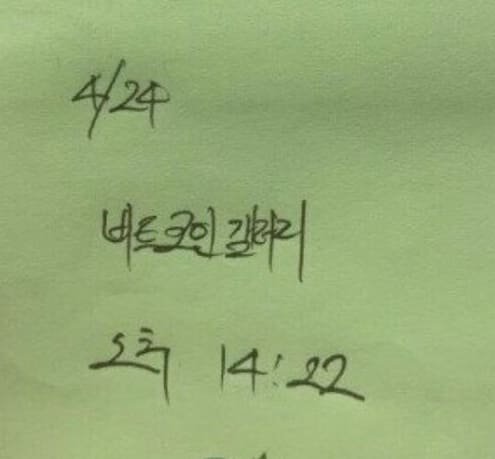 4/24
비트코인 갤러리
오후 14:22